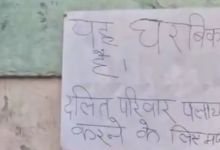 यह घर बिक
है।
दलित परिवार पलाय
करने के लिए म